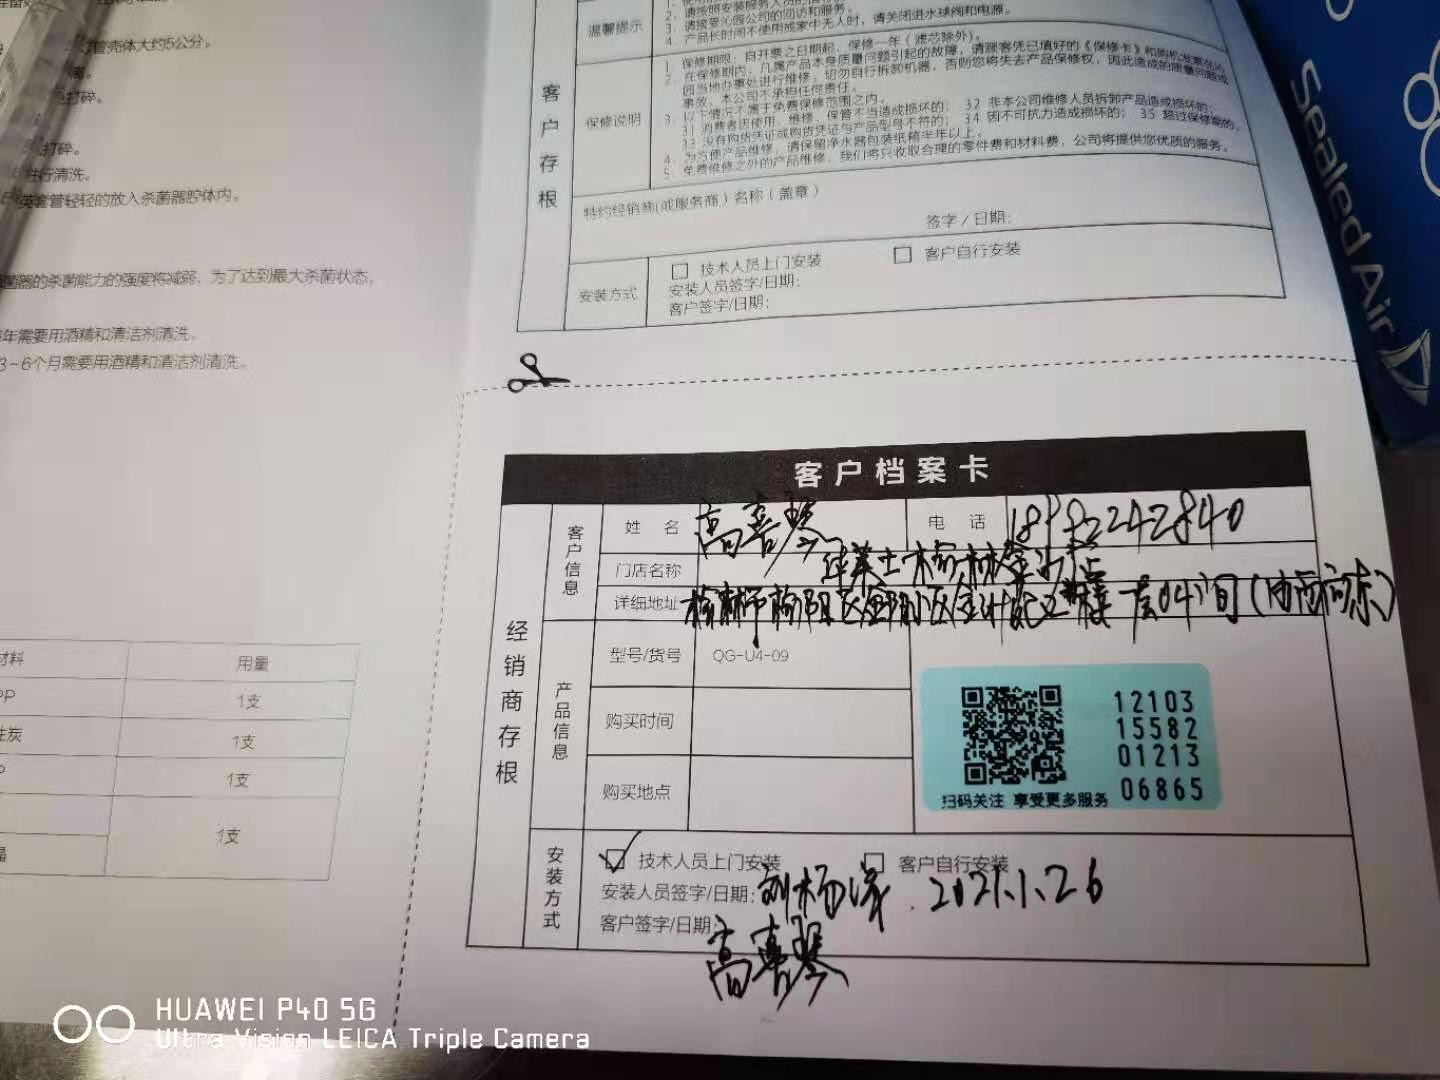 管壳体大约5公分。
打碎。
打碎。
行清洗。
英套管轻轻的放入杀菌器腔体内。
菌器的杀菌能力的强度将减弱，为了达到最大杀菌状态，
年需要用酒精和清洁剂清洗。
3~6个月需要用酒精和清洁剂清洗。
材料 用量
PP 1支
性炭 1支
P 1支
晶 1支
客户存根
温馨提示
2、请按照安装服务人员的
3、请接受沁园公司的回访和服务。
4、产品长时间不使用或家中无人时，请关闭进水球阀和电源。
保修说明
1、保修期限：自开票之日期起，保修一年（滤芯除外）。
2、在保修期内，凡属产品本身质量问题引起的故障，请顾客凭已填好的《保修卡》和购机发票在沁
园当地办事处进行维修。切勿自行拆卸机器，否则您将失去产品保修权，因此造成的质量问题或
事故，本公司不承担任何责任。
3、以下情况不属于免费保修范围之内。
31 消费者因使用、维修、保管不当造成损坏的； 32 非本公司维修人员拆卸产品造成损坏的；
33 没有购货凭证或购货凭证与产品型号不符的； 34 因不可抗力造成损坏的； 35 超过保修期的。
4、为方便产品维修，请保留净水器包装纸箱半年以上。
5、免费维修之外的产品维修，我们将只收取合理的零件费和材料费，公司将提供您优质的服务。
特约经销商(或服务商)名称(盖章)
签字/日期：
安装方式
技术人员上门安装 客户自行安装
安装人员签字/日期：
客户签字/日期：
Sealed Air
客户档案卡
经销商存根
客户信息
姓 名 高喜琴 电 话
门店名称
详细地址
产品信息
型号/货号 QG-U4-09
购买时间
购买地点
12103
15582
01213
06865
扫码关注 享受更多服务
安装方式
技术人员上门安装 客户自行安装
安装人员签字/日期: 刘杨洋. 2021.1.26
客户签字/日期:
高喜琴
HUAWEI P40 5G
Ultra Vision LEICA Triple Camera